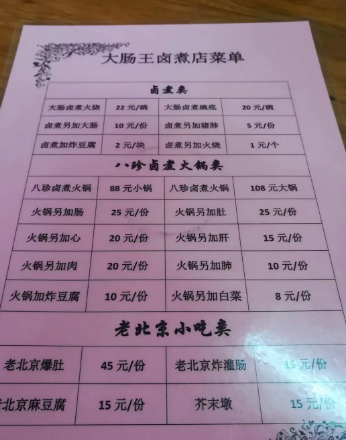 大肠王卤煮店菜单
卤煮类
大肠卤煮火烧 22 元/碗 大肠卤煮碗底 20 元/碗
卤煮另加大肠 10 元/份 卤煮另加猪肺 5 元/份
卤煮加炸豆腐 2 元/块 卤煮另加火烧 1 元/个
八珍卤煮火锅类
八珍卤煮火锅 88 元小锅 八珍卤煮火锅 108 元大锅
火锅另加肠 25 元/份 火锅另加肚 25 元/份
火锅另加心 20 元/份 火锅另加肝 15 元/份
火锅另加肉 20 元/份 火锅另加肺 10 元/份
火锅加炸豆腐 10 元/份 火锅另加白菜 8 元/份
老北京小吃类
老北京爆肚 45 元/份 老北京炸灌肠 15 元/份
老北京麻豆腐 15 元/份 芥末墩 15 元/份